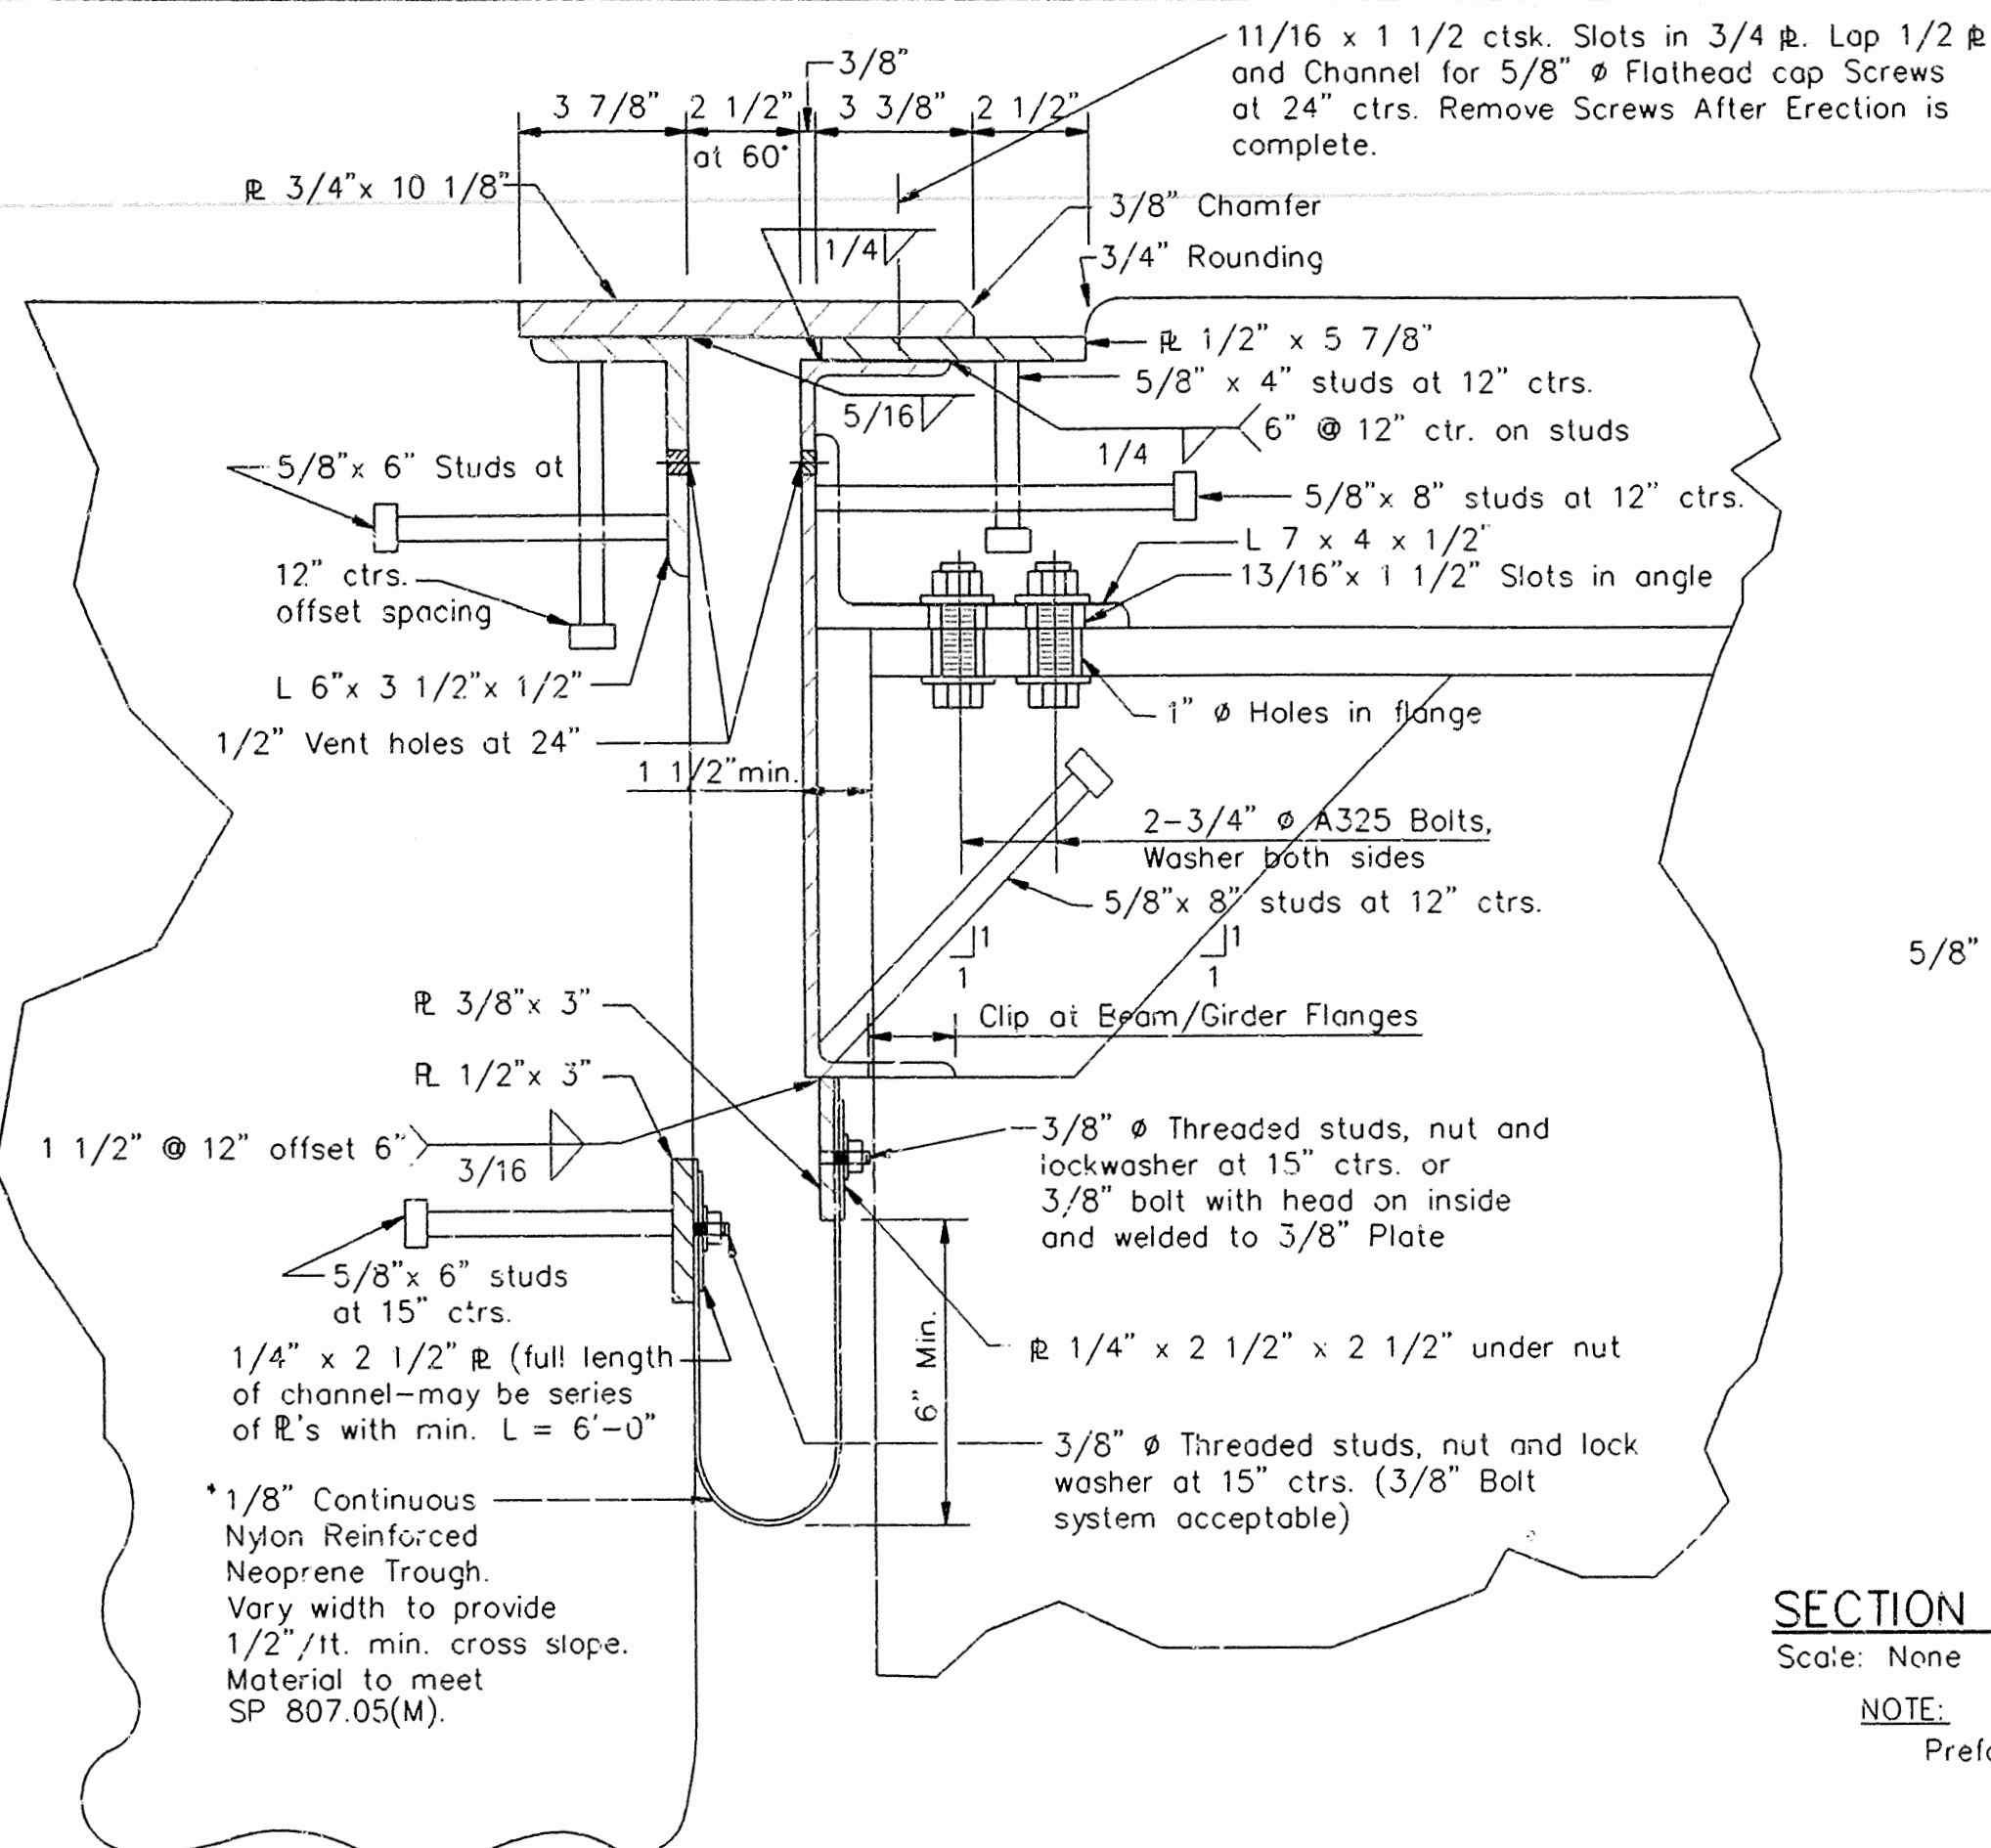 11/16 x 1 1/2 ctsk. Slots in 3/4 ℄. Lap 1/2 ℄
and Channel for 5/8" ø Flathead cap Screws
at 24" ctrs. Remove Screws After Erection is
complete.
3/8"
3 7/8" 2 1/2" 3 3/8" 2 1/2"
at 60°
℄ 3/4"x 10 1/8"
3/8" Chamfer
1/4
3/4" Rounding
℄ 1/2" x 5 7/8"
5/8" x 4" studs at 12" ctrs.
5/16
6" @ 12" ctr. on studs
1/4
5/8"x 6" Studs at
5/8"x 8" studs at 12" ctrs.
L 7 x 4 x 1/2"
13/16"x 1 1/2" Slots in angle
12" ctrs.
offset spacing
L 6"x 3 1/2"x 1/2"
1" ø Holes in flange
1/2" Vent holes at 24"
1 1/2"min.
2-3/4" ø A325 Bolts,
Washer both sides
5/8"x 8" studs at 12" ctrs.
1
1
1
1
5/8"
℄ 3/8"x 3"
Clip at Beam/Girder Flanges
℄ 1/2"x 3"
1 1/2" @ 12" offset 6"
3/16
3/8" ø Threaded studs, nut and
lockwasher at 15" ctrs. or
3/8" bolt with head on inside
and welded to 3/8" Plate
5/8"x 6" studs
at 15" ctrs.
6" Min.
1/4" x 2 1/2" ℄ (full length
of channel-may be series
of ℄'s with min. L = 6'-0"
℄ 1/4" x 2 1/2" x 2 1/2" under nut
3/8" ø Threaded studs, nut and lock
washer at 15" ctrs. (3/8" Bolt
system acceptable)
*1/8" Continuous
Nylon Reinforced
Neoprene Trough.
Vary width to provide
1/2"/ft. min. cross slope.
Material to meet
SP 807.05(M).
SECTION
Scale: None
NOTE: